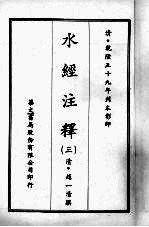 清•乾隆五十九年刊本影印
水經注釋
(三)清•趙一清撰
華文書局股份有限公司印行